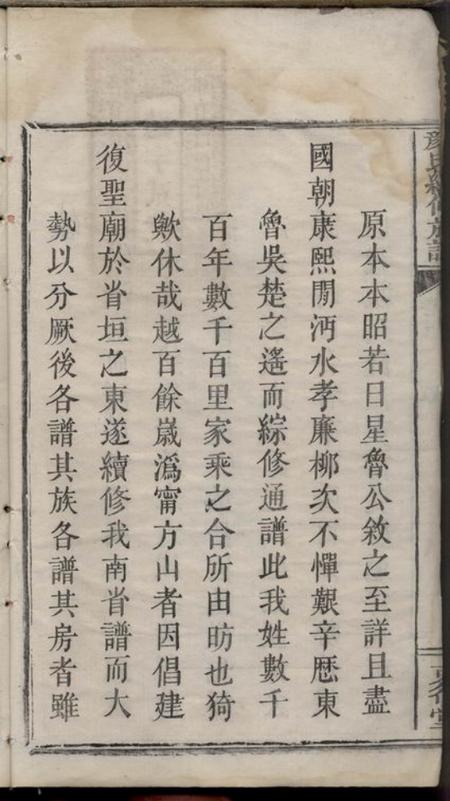 顏氏續修族譜
原本本昭若日星魯公敘之至詳且盡
國朝康熙閒沔水孝廉柳次不憚艱辛歷東
魯吳楚之遙而綜修通譜此我姓數千
百年數千百里家乘之合所由昉也猗
歟休哉越百餘歲溈甯方山者因倡建
復聖廟於省垣之東遂續修我南省譜而大
勢以分厥後各譜其族各譜其房者雖